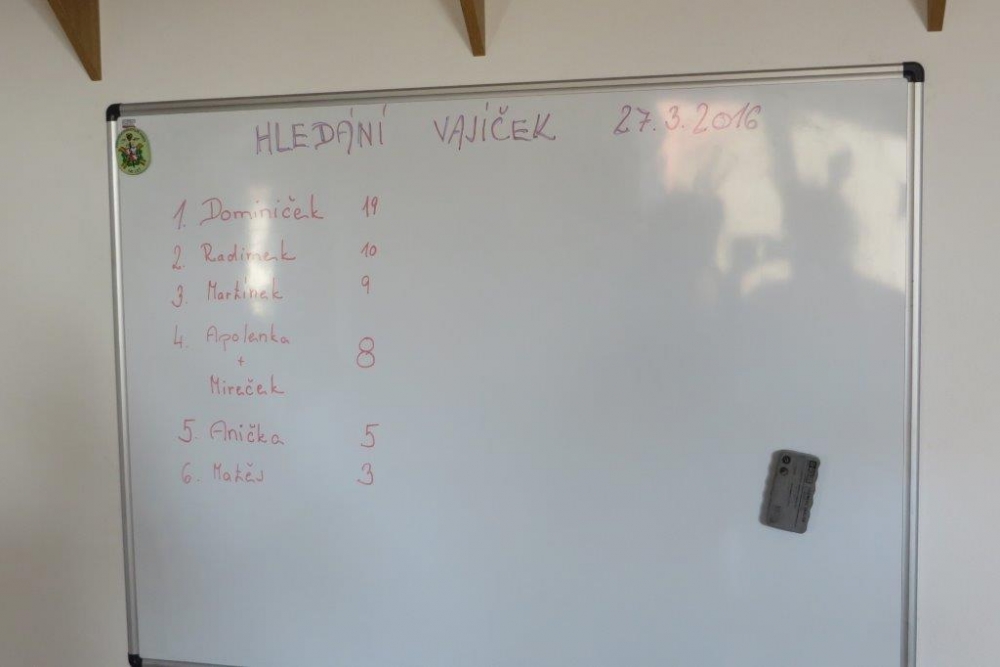 HLEDÁNÍ VAJÍČEK 27.3.2016
1. Dominiček 19
2. Radimek 10
3. Martínek 9
4. Apolenka
+ 8
Mireček
5. Anička 5
6. Matěj 3